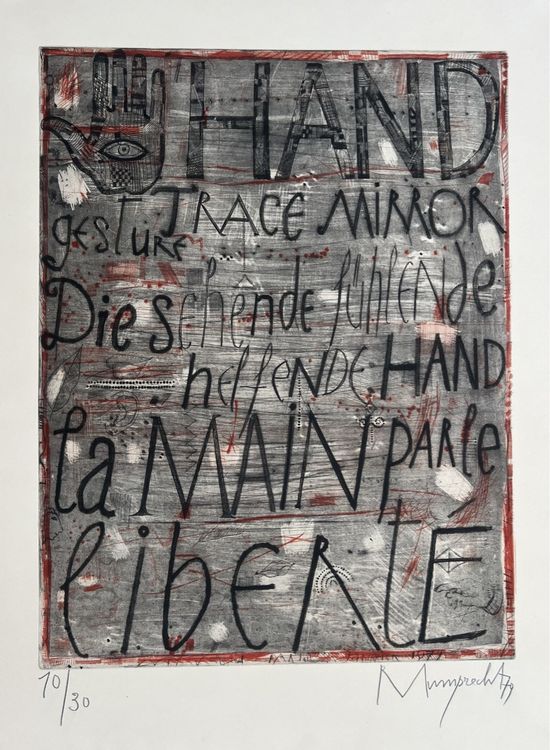 HAND
gesture TRACE MIRROR
Die sehênde fühlende
helfeNDE HAND
la MAIN parle
liberté
10/30 R Mumprecht 79